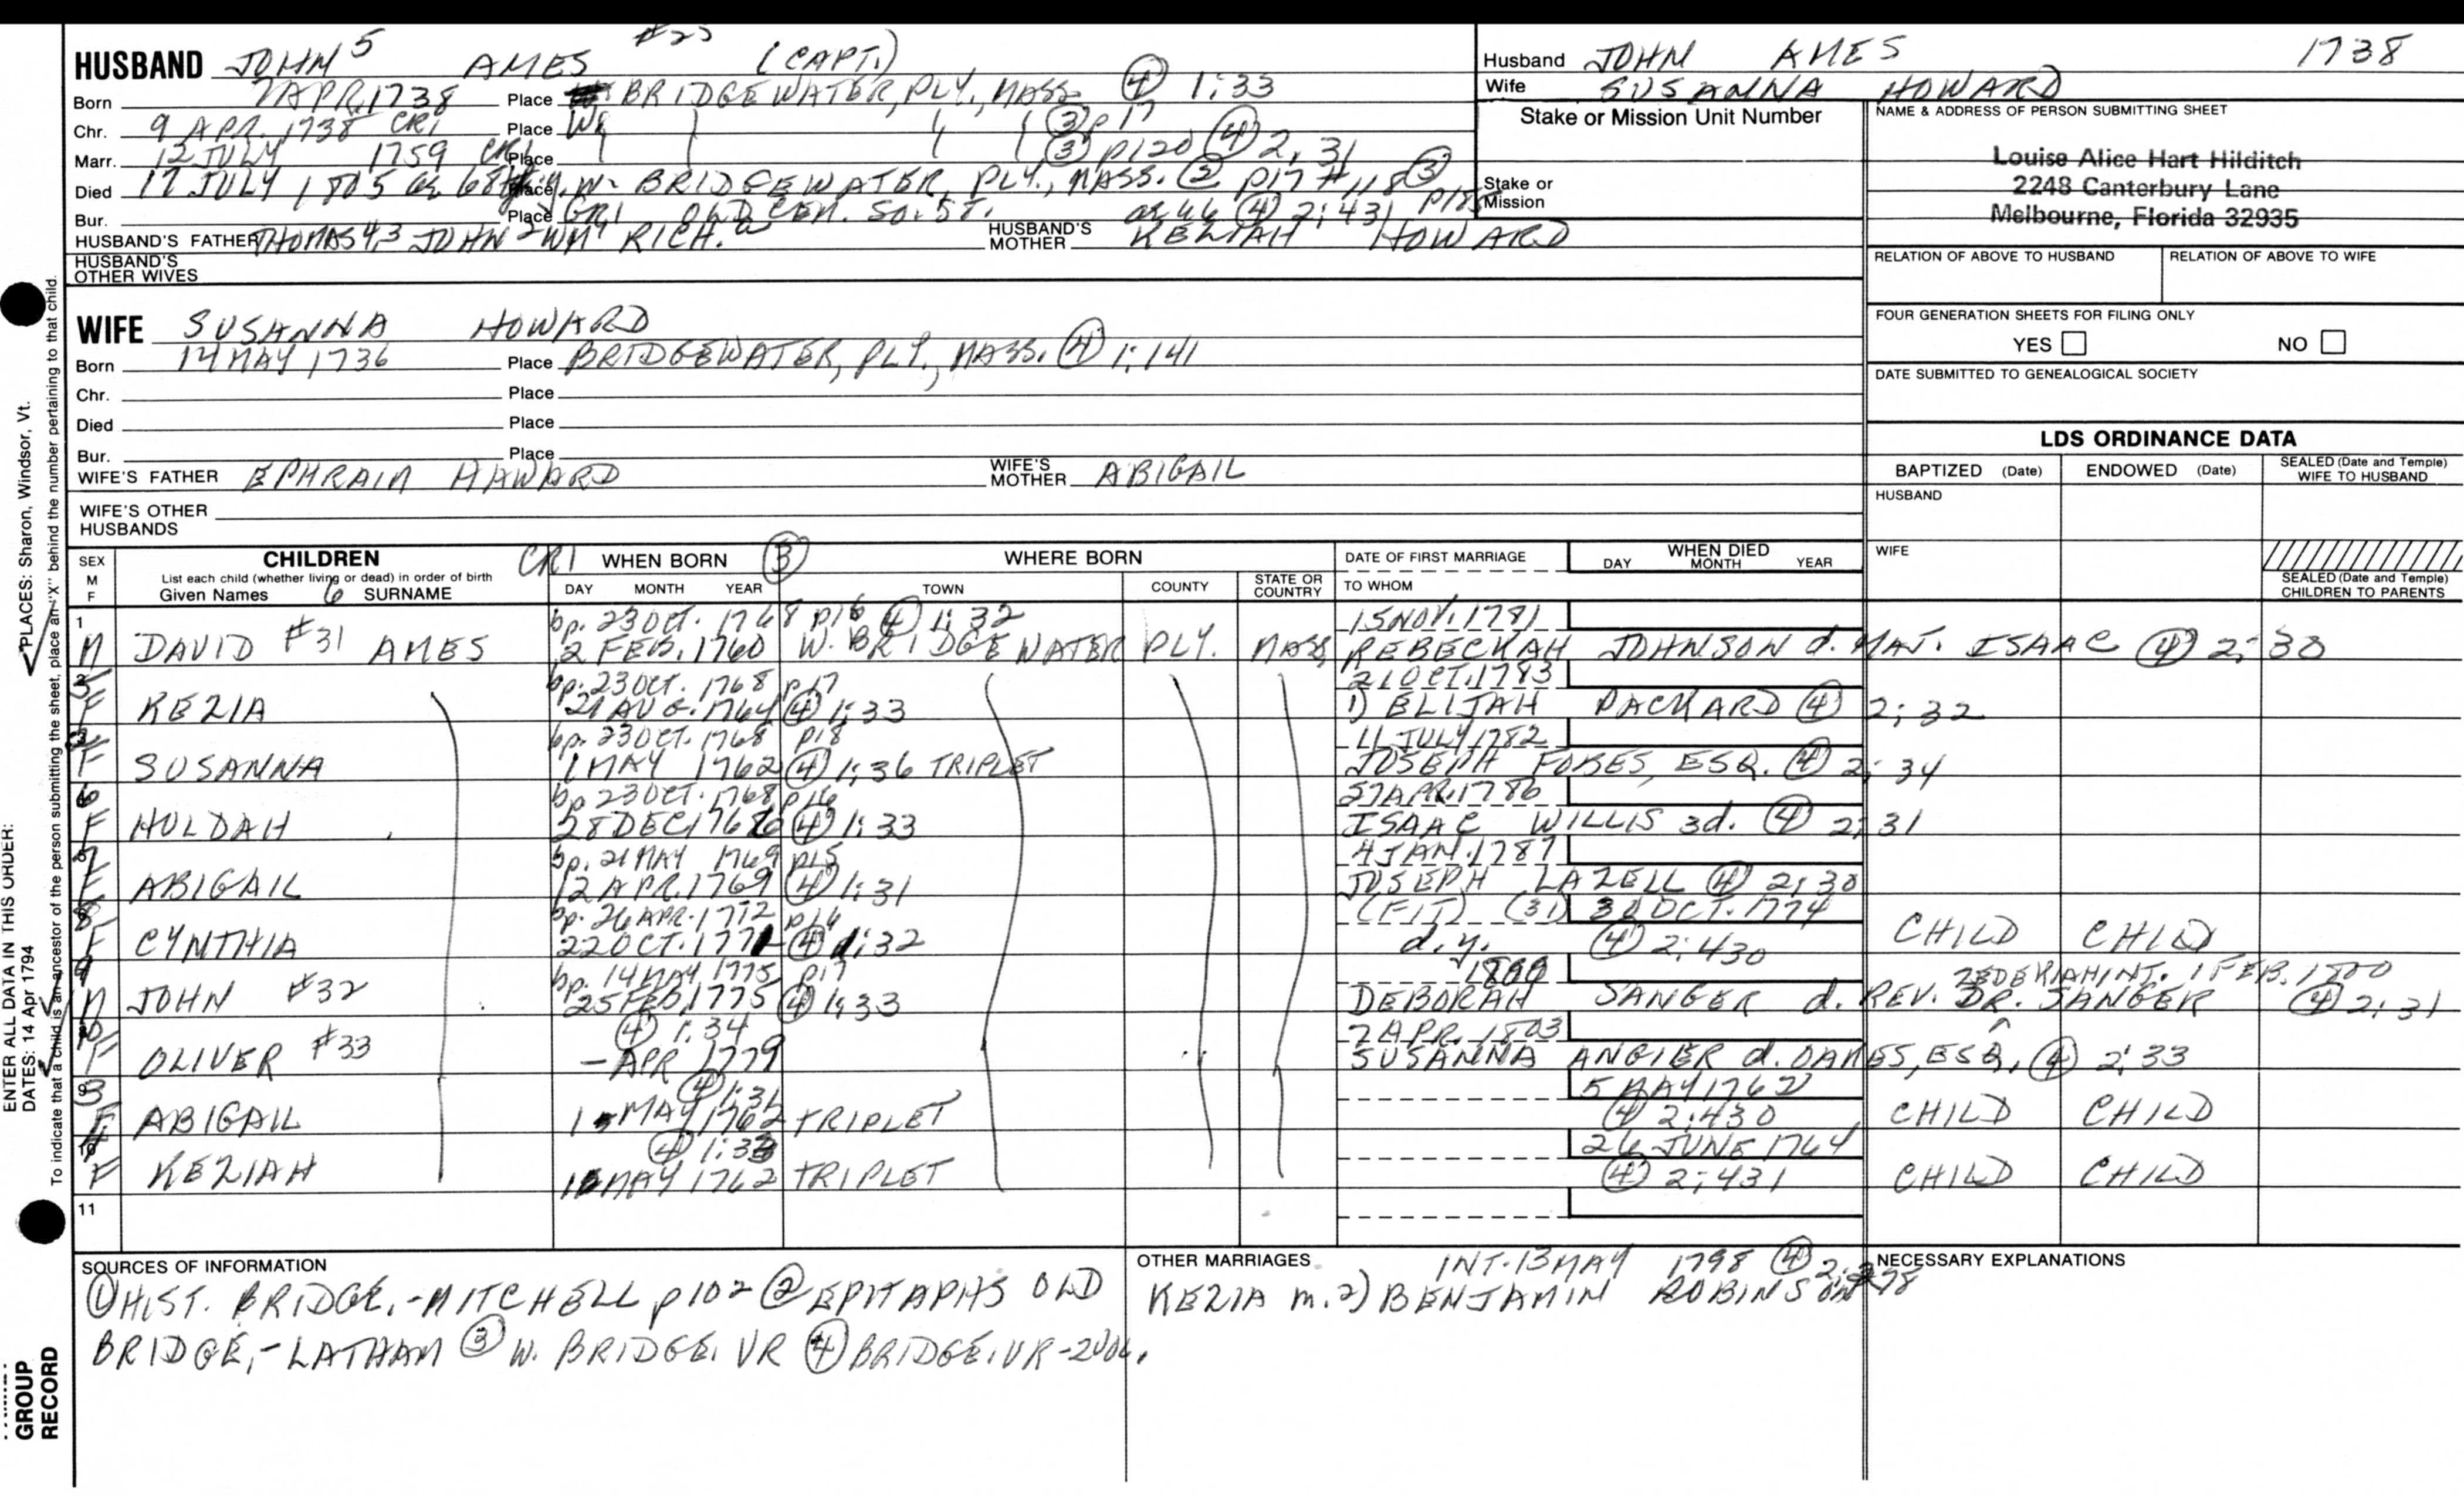 HUSBAND JOHN 5 AMES #25 (CAPT.)
Born 7 APR. 1738 Place BRIDGEWATER, PLY., MASS. ④ 1:33
Chr. 9 APR. 1738 CR1 Place W. ③ p17
Marr. 12 JULY 1759 CR1 Place ③ p120 ④ 2:31
Died 17 JULY 1805 ae 68th y. Place W. BRIDGEWATER, PLY., MASS. ② p17 #118 ③
Bur. Place GR1 OLD CEM. SO. ST. ae 66 ④ 2:431 p185
HUSBAND'S FATHER THOMAS 4,3 JOHN 2 WM 1 RICH. a HUSBAND'S MOTHER KEZIAH HOWARD
HUSBAND'S OTHER WIVES
Husband JOHN AMES 1738
Wife SUSANNA HOWARD
Stake or Mission Unit Number
Stake or Mission
NAME & ADDRESS OF PERSON SUBMITTING SHEET
Louise Alice Hart Hilditch
2248 Canterbury Lane
Melbourne, Florida 32935
RELATION OF ABOVE TO HUSBAND RELATION OF ABOVE TO WIFE
FOUR GENERATION SHEETS FOR FILING ONLY
YES NO
DATE SUBMITTED TO GENEALOGICAL SOCIETY
WIFE SUSANNA HOWARD
Born 14 MAY 1736 Place BRIDGEWATER, PLY., MASS. ④ 1:141
Chr. Place
Died Place
Bur. Place
WIFE'S FATHER EPHRAIM HAWARD WIFE'S MOTHER ABIGAIL
WIFE'S OTHER HUSBANDS
LDS ORDINANCE DATA
BAPTIZED (Date) ENDOWED (Date) SEALED (Date and Temple) WIFE TO HUSBAND
HUSBAND
WIFE
SEALED (Date and Temple) CHILDREN TO PARENTS
SEX M F
CHILDREN
List each child (whether living or dead) in order of birth
Given Names 6 SURNAME
CR1 WHEN BORN ③
DAY MONTH YEAR
WHERE BORN
TOWN COUNTY STATE OR COUNTRY
DATE OF FIRST MARRIAGE
TO WHOM
WHEN DIED
DAY MONTH YEAR
1 bp. 23 OCT. 1768 p16 ④ 1:32 15 NOV. 1781
M DAVID #31 AMES 2 FEB. 1760 W. BRIDGEWATER PLY. MASS. REBECKAH JOHNSON d. MAJ. ISAAC ④ 2:30
5 bp. 23 OCT. 1768 p17 21 OCT. 1783
F KEZIA 21 AUG. 1764 ④ 1:33 1) ELIJAH PACKARD ④ 2:32
2 bp. 23 OCT. 1768 p18 11 JULY 1782
F SUSANNA 1 MAY 1762 ④ 1:36 TRIPLET JOSEPH FOBES, ESQ. ④ 2:34
6 bp. 23 OCT. 1768 p16 27 APR. 1786
F HULDAH 28 DEC 1766 ④ 1:33 ISAAC WILLIS 3d. ④ 2:31
7 bp. 21 MAY 1769 p15 4 JAN. 1787
F ABIGAIL 12 APR. 1769 ④ 1:31 JOSEPH LAZELL ④ 2:30
8 bp. 26 APR. 1772 p16 (FIT) (31) 30 OCT. 1774
F CYNTHIA 22 OCT. 1771 ④ 1:32 d.y. ④ 2:430 CHILD CHILD
9 bp. 14 MAY 1775 p17 1800 ZEDEKIAH INT. 1 FEB. 1800
M JOHN #32 25 FEB. 1775 ④ 1:33 DEBORAH SANGER d. REV. DR. SANGER ④ 2:31
10 ④ 1:34 7 APR. 1803
F OLIVER #33 - APR 1779 SUSANNA ANGIER d. OAKES, ESQ., ④ 2:33
3 ④ 1:31 5 MAY 1762
F ABIGAIL 1 MAY 1762 TRIPLET ④ 2:430 CHILD CHILD
4 ④ 1:33 26 JUNE 1764
F KEZIAH 1 MAY 1762 TRIPLET ④ 2:431 CHILD CHILD
11
SOURCES OF INFORMATION
① HIST. BRIDGE.-MITCHELL p102 ② EPITAPHS OLD
BRIDGE.-LATHAM ③ W. BRIDGE. VR ④ BRIDGE. VR-2 VOL.
OTHER MARRIAGES INT. 13 MAY 1798 ④
KEZIA m. 2) BENJAMIN ROBINSON
NECESSARY EXPLANATIONS
ENTER ALL DATA IN THIS ORDER:
DATES: 14 Apr 1794 PLACES: Sharon, Windsor, Vt.
To indicate that a child is an ancestor of the person submitting the sheet, place an "X" behind the number pertaining to that child.
GROUP
RECORD